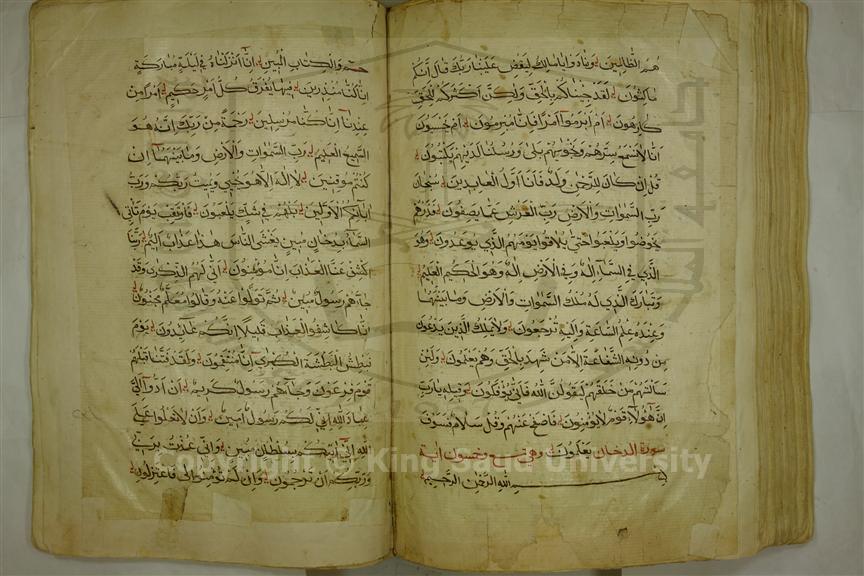 هم الظالمين ونادوا يا مالك ليقض علينا ربك قال انكم
ماكثون لقد جئناكم بالحق ولكن اكثركم للحق
كارهون ام ابرموا امرا فانا مبرمون ام يحسبون
انا لا نسمع سرهم ونجويهم بلى ورسلنا لديهم يكتبون
قل ان كان للرحمن ولد فانا اول العابدين سبحان
رب السموات والارض رب العرش عما يصفون فذرهم
يخوضوا ويلعبوا حتى يلاقوا يومهم الذي يوعدون وهو
الذي في السماء اله وفي الارض اله وهو الحكيم العليم
وتبارك الذي له ملك السموات والارض وما بينهما
وعنده علم الساعة واليه ترجعون ولا يملك الذين يدعون
من دونه الشفاعة الا من شهد بالحق وهم يعلمون ولئن
سالتهم من خلقهم ليقولن الله فانى يؤفكون وقيله يا رب
ان هؤلاء قوم لا يؤمنون فاصفح عنهم وقل سلام فسوف
يعلمون سورة الدخان وهي تسع وخمسون اية
بسم الله الرحمن الرحيم
حم والكتاب المبين انا انزلناه في ليلة مباركة
انا كنا منذرين فيها يفرق كل امر حكيم امرا من
عندنا انا كنا مرسلين رحمة من ربك انه هو
السميع العليم رب السموات والارض وما بينهما ان
كنتم موقنين لا اله الا هو يحيي ويميت ربكم ورب
ابائكم الاولين بل هم في شك يلعبون فارتقب يوم تاتي
السماء بدخان مبين يغشى الناس هذا عذاب اليم ربنا
اكشف عنا العذاب انا مؤمنون انى لهم الذكرى وقد
جاءهم رسول مبين ثم تولوا عنه وقالوا معلم مجنون
انا كاشفوا العذاب قليلا انكم عائدون يوم
نبطش البطشة الكبرى انا منتقمون ولقد فتنا قبلهم
قوم فرعون وجاءهم رسول كريم ان ادوا الي
عباد الله اني لكم رسول امين وان لا تعلوا على
الله اني اتيكم بسلطان مبين واني عذت بربي
وربكم ان ترجمون وان لم تؤمنوا لي فاعتزلون
Copyright © King Saud University